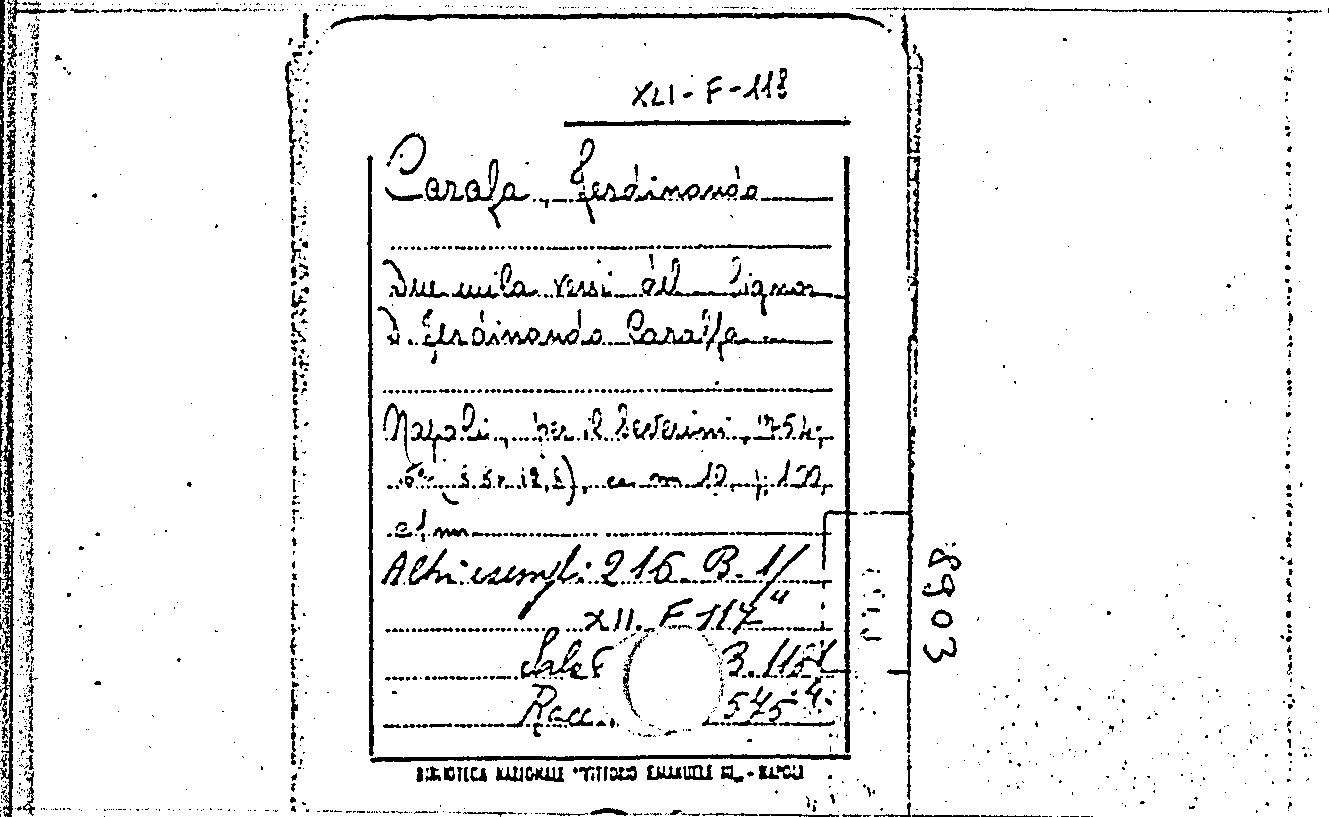 XLI - F - 118
Carafa, Ferdinando
Due mila versi del Signor
D. Ferdinando Caraffa
Napoli, per il Severini, 1754;
8° ( 12,5), cc. nn. 10, p. 100,
c 1 nn
Altri esempl: 216. B. 1/
XII. F 117"
Sala B.
Racc. 575
BIBLIOTECA NAZIONALE "VITTORIO EMANUELE III" - NAPOLI
8903